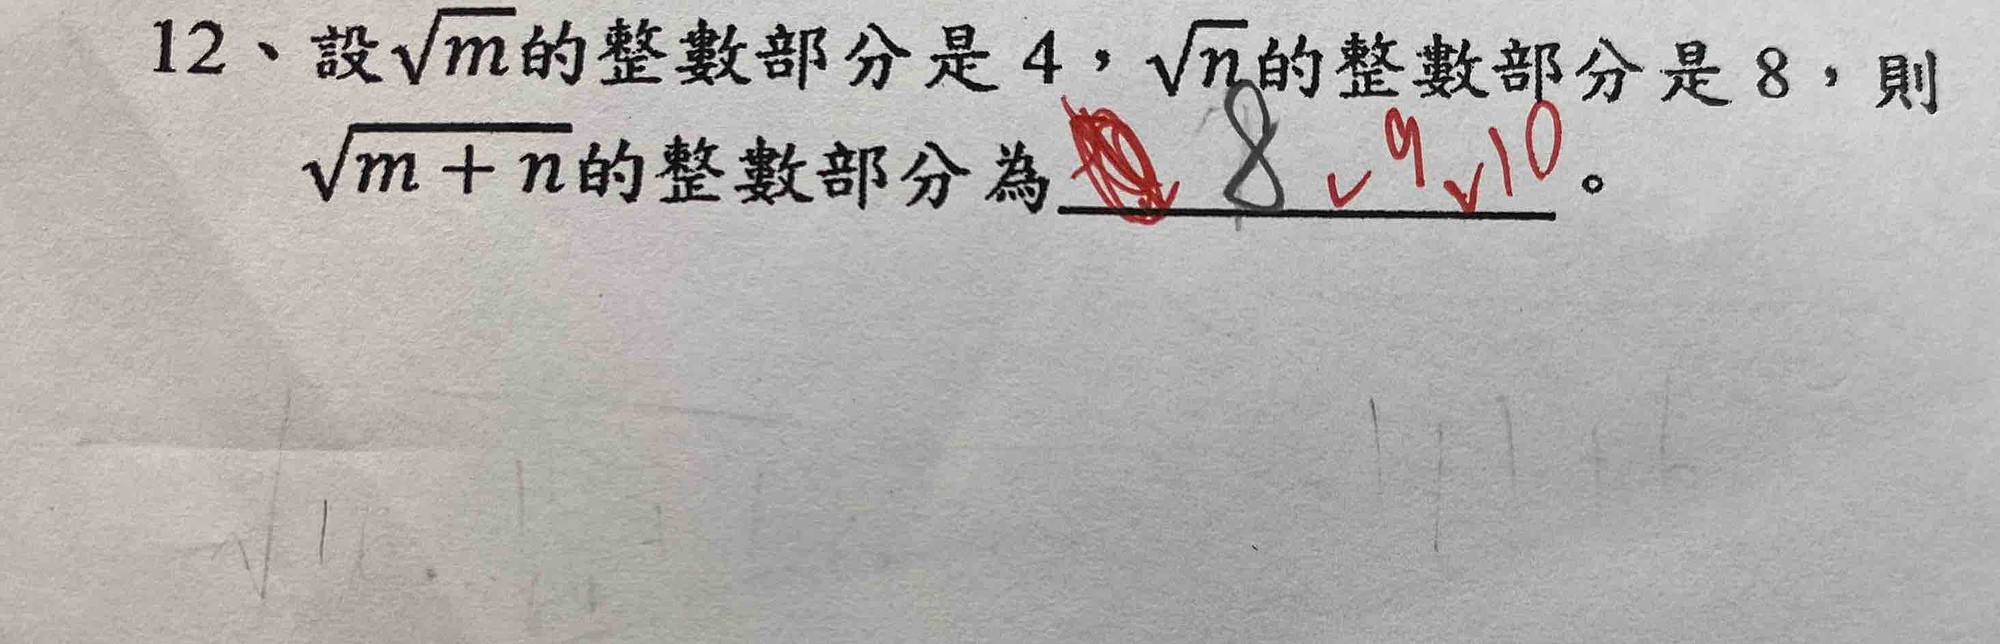 12、設√m的整數部分是4，√n的整數部分是8，則
√m+n的整數部分為 8 ✓9 ✓10。